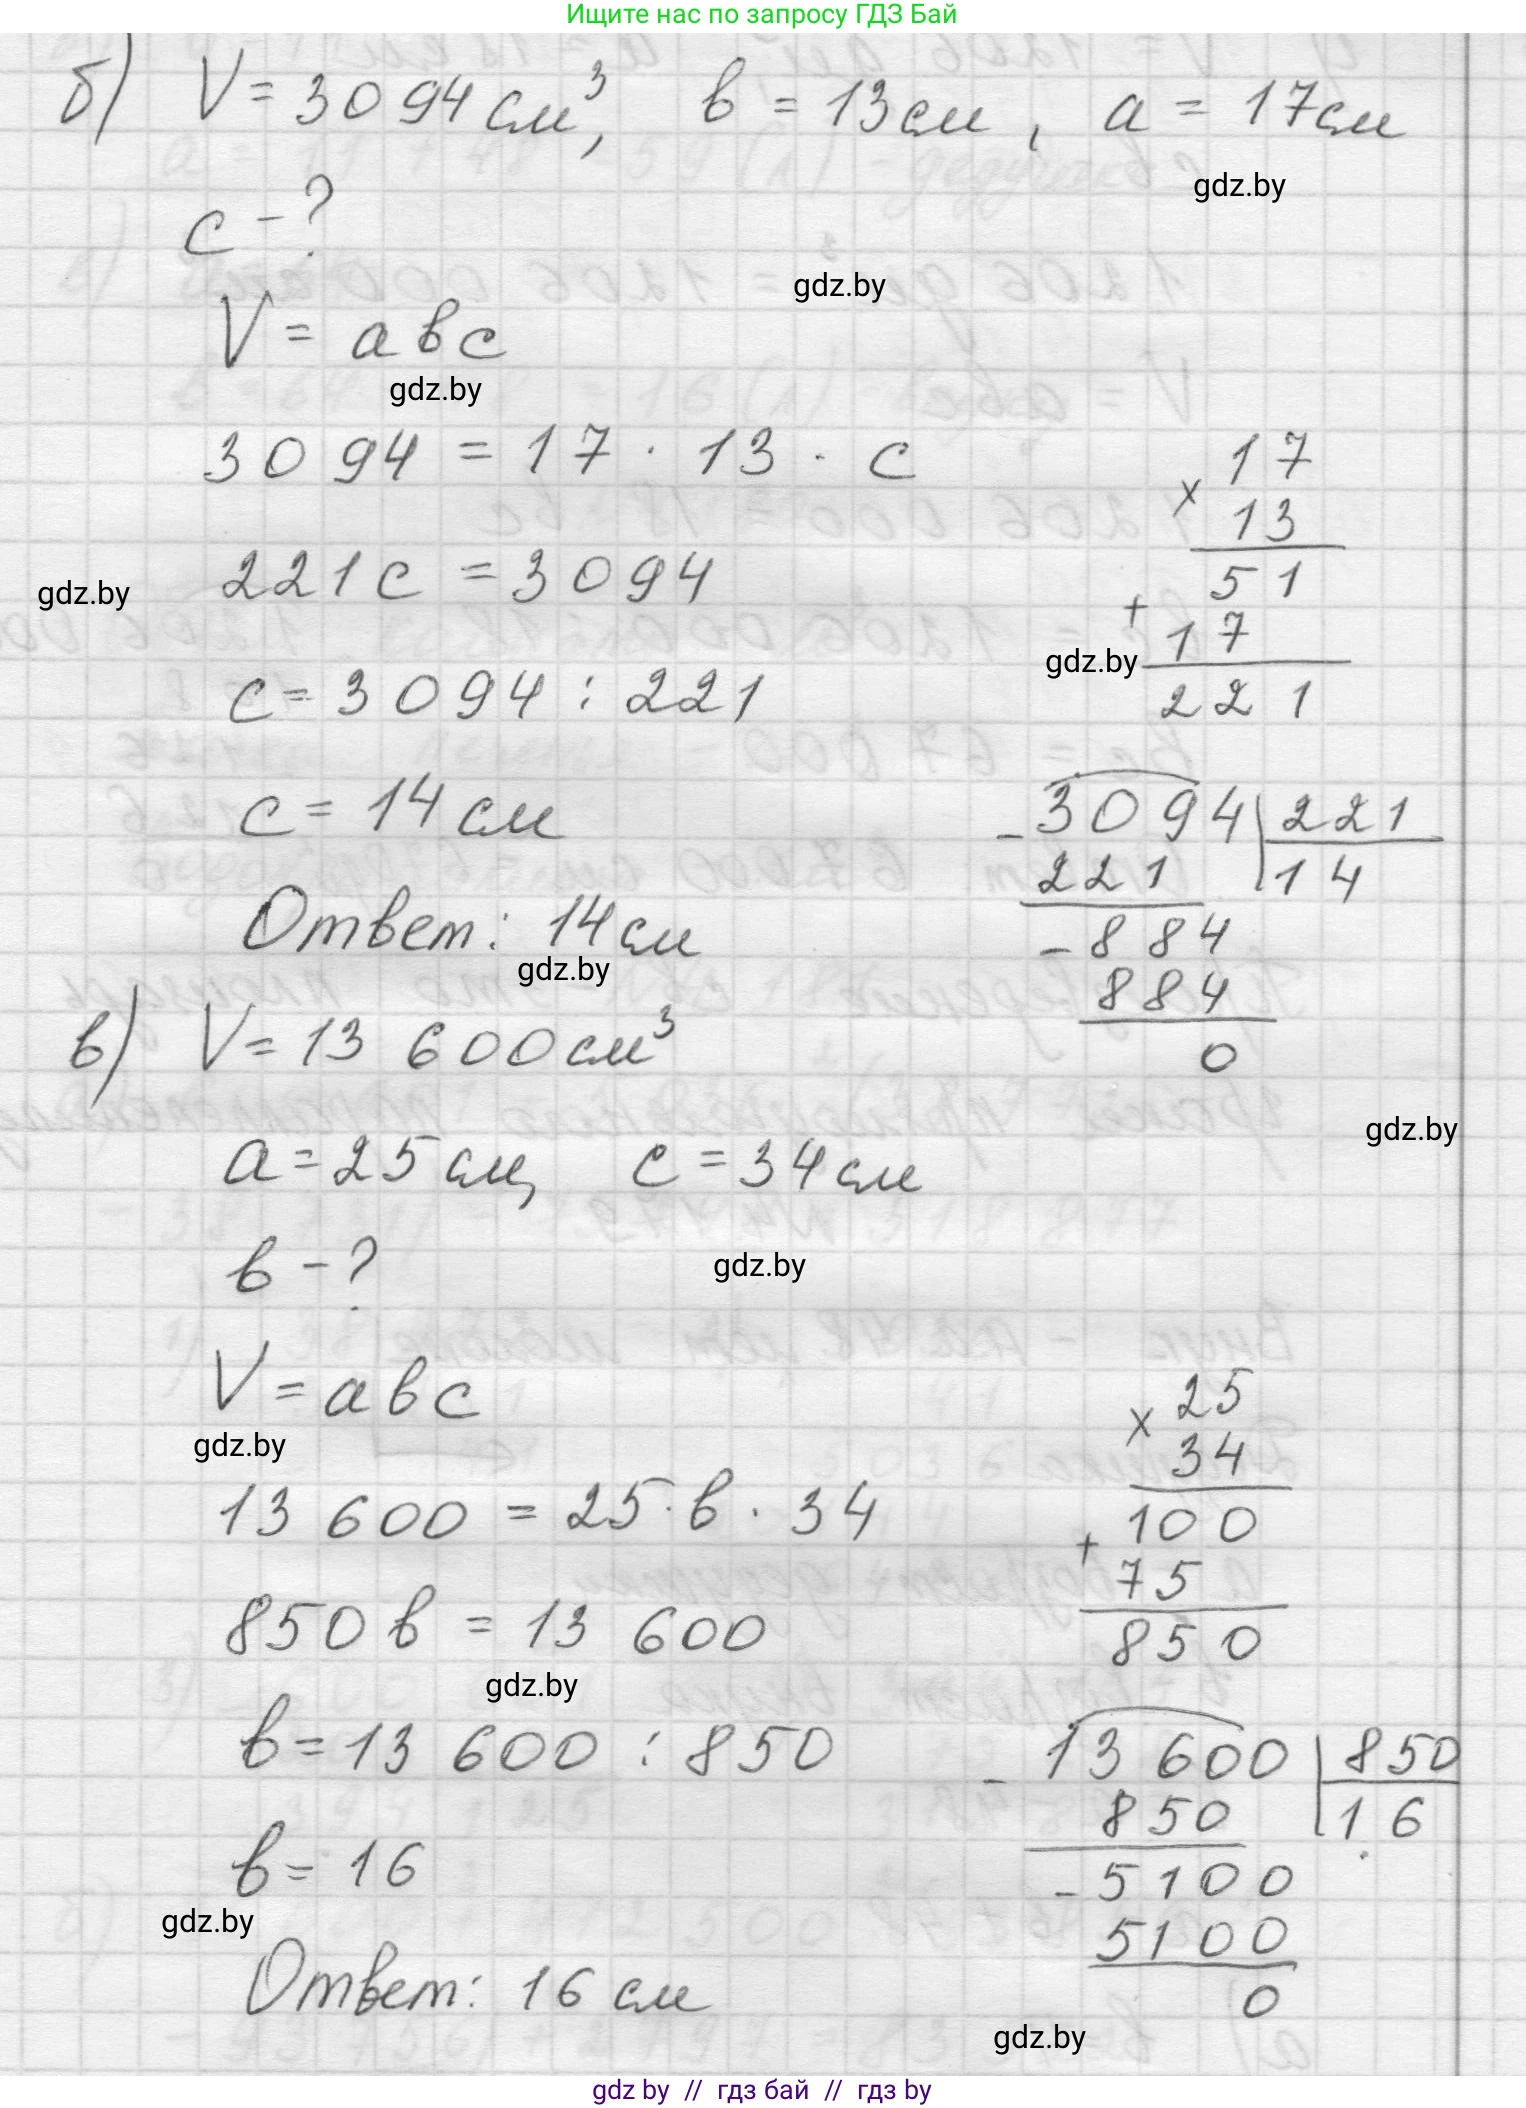 Ищите нас по запросу ГДЗ Бай
б) V = 3094 см³, в = 13 см, а = 17 см
gdz.by
с - ?
gdz.by
V = авс
gdz.by
3094 = 17 · 13 · с
17
× 13
51
+ 17
221
221с = 3094
gdz.by
gdz.by
с = 3094 : 221
с = 14 см
- 3094 | 221
221 | 14
- 884
884
0
Ответ: 14 см
gdz.by
в) V = 13 600 см³
gdz.by
а = 25 см, с = 34 см
в - ?
gdz.by
V = авс
gdz.by
25
× 34
100
+ 75
850
13 600 = 25 · в · 34
850 в = 13 600
gdz.by
в = 13 600 : 850
- 13 600 | 850
850 | 16
- 5100
5100
0
в = 16
gdz.by
Ответ: 16 см
gdz.by
gdz by // гдз бай // гдз by